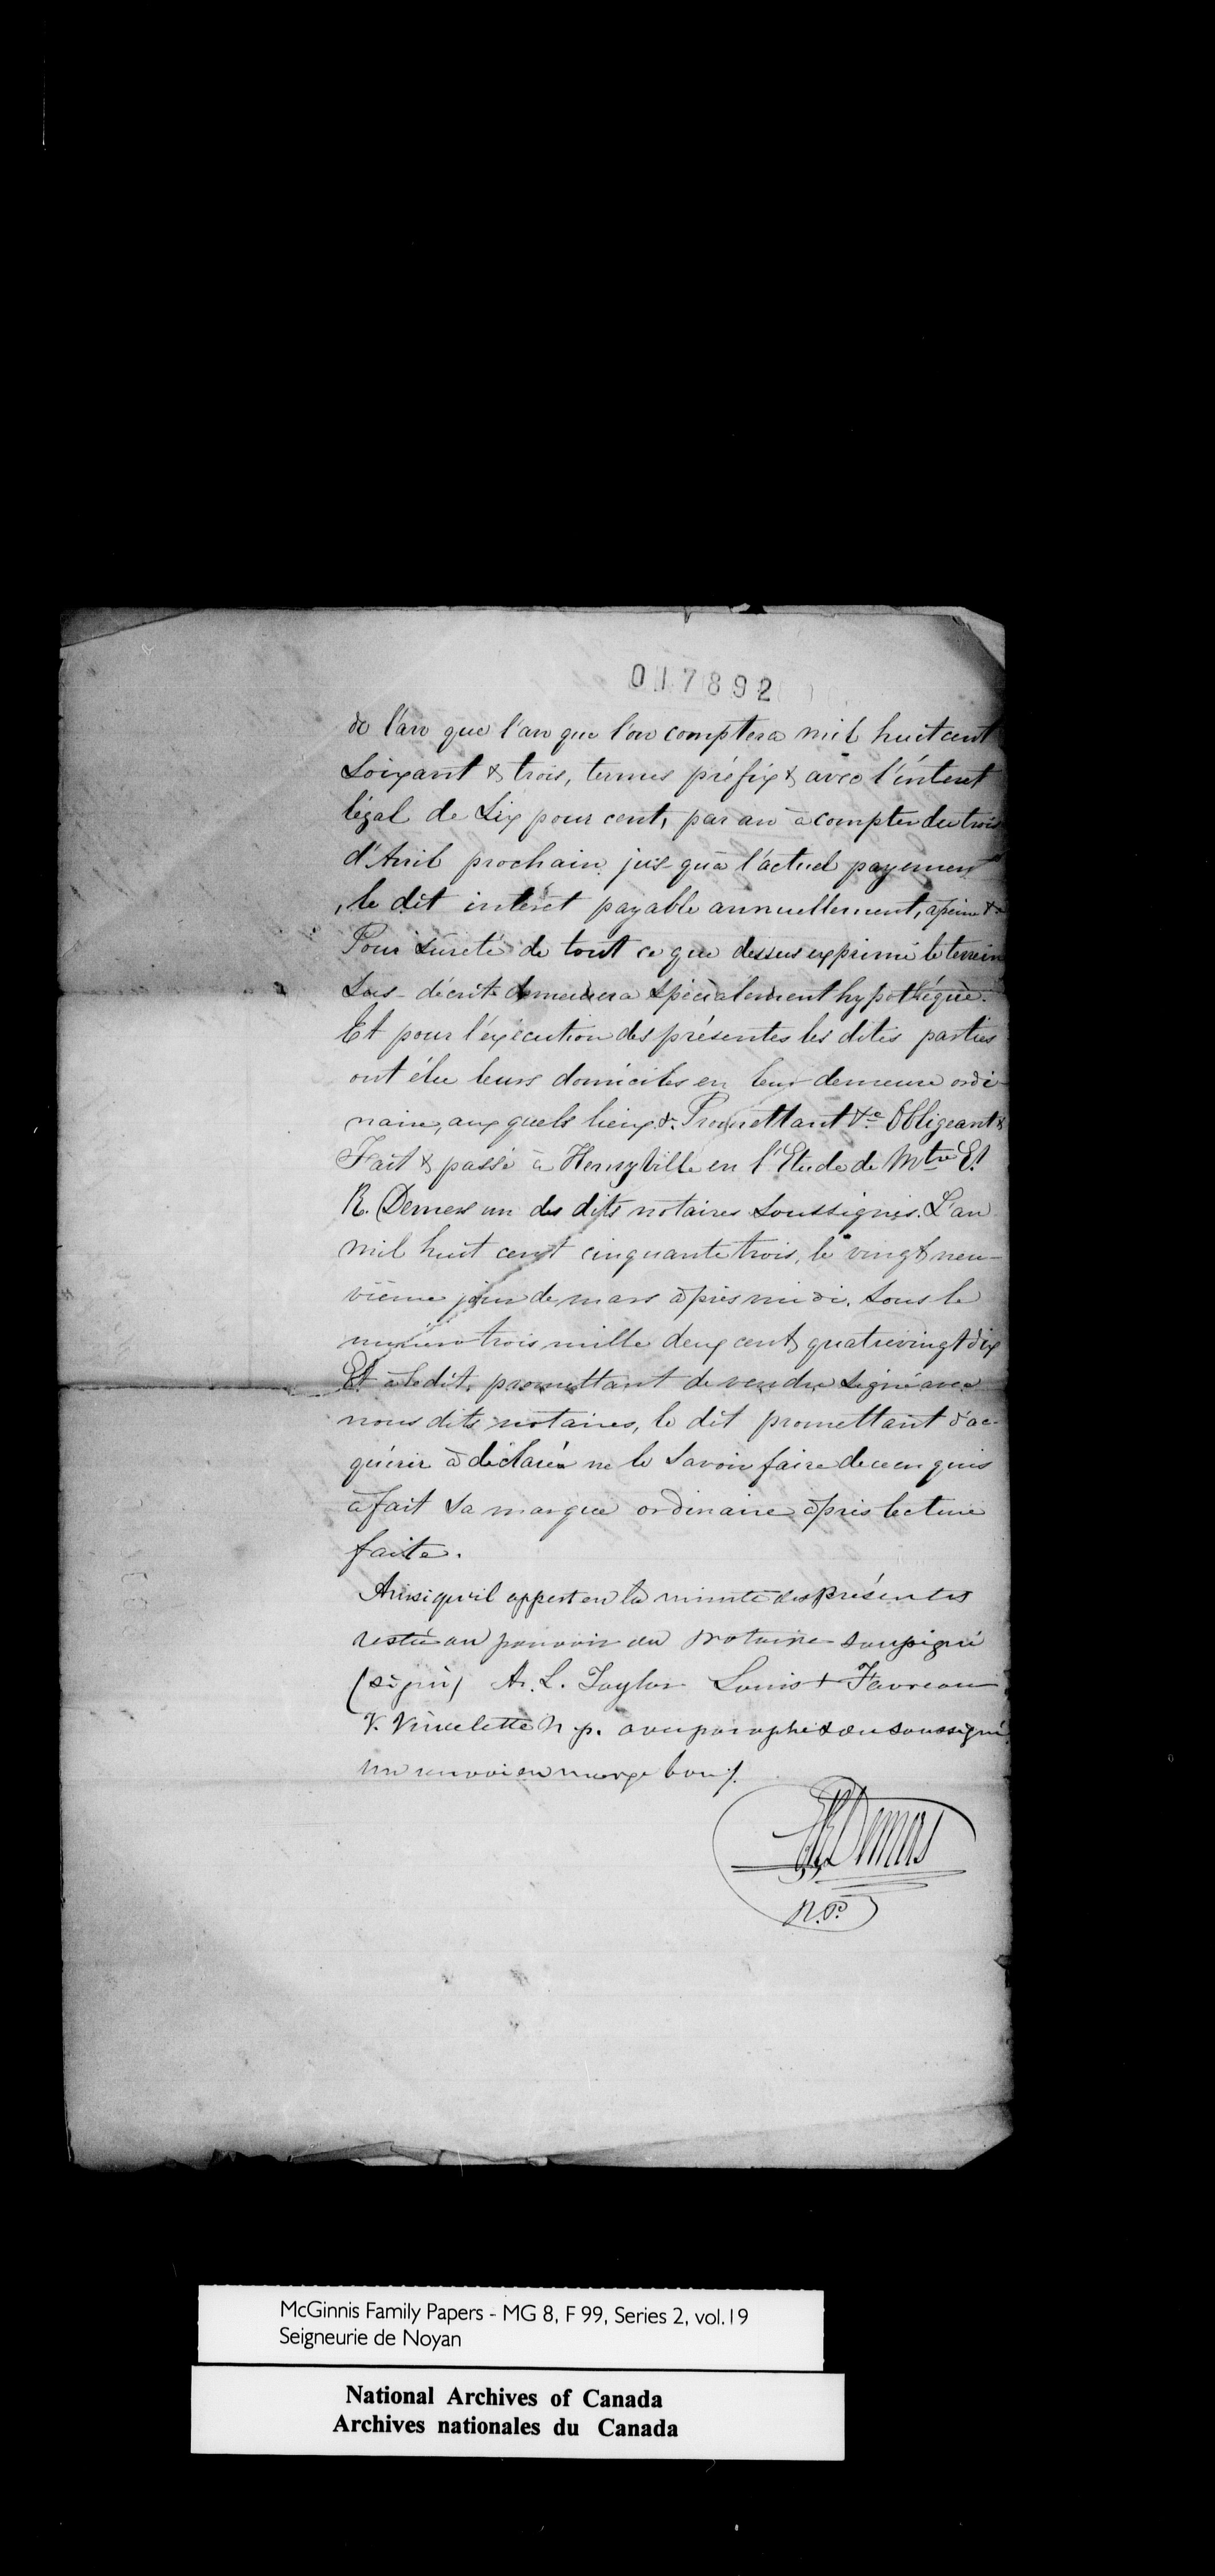 017892
de l'an que l'an que l'on comptera mil huit cent
Soixant & trois, termes préfix & avec l'intèret
légal de Six pour cent, par an à compter du trois
d'Avril prochain jus-qu'à l'actuel payement
, le dit intèrèt payable annuellement, apeine &a
Pour Sûreté de tout ce que dessus exprimé le terrein
Sus-décrit demeurera Spècialement hypothéqué.
Et pour l'éxécution des présentes les dites parties
ont élu leurs domiciles en leur demeure ordi-
naire, aux quels lieux &. Promettant &e Obligeant &
Fait & passé à Henryville en l'Etude de Mtre E.
R. Demers un des dits notaires Soussignés. L'an
mil huit cent cinquante trois, le vingt neu-
vième jour de mars àprès midi. Sous le
numéro trois mille deux cent quatrevingt dix
Et à le dit promettant de vendre Signé avec
nous dits notaires, le dit promettant d'ac-
quérir à déclaré ne le Savoir faire de ce en quis
à fait Sa marque ordinaire àprès lecture
faite.
Ainsi qu'il appert en la minute des Présentes
restée au pouvoir du Notaire Soussigné
(Signé) A. L. Taylor Louis + Favreau
V. Vincelette N. p. avec paraphe & du soussigné
un renvoi en marge bon /.
ERDemers
N.P.
McGinnis Family Papers - MG 8, F 99, Series 2, vol.19
Seigneurie de Noyan
National Archives of Canada
Archives nationales du Canada